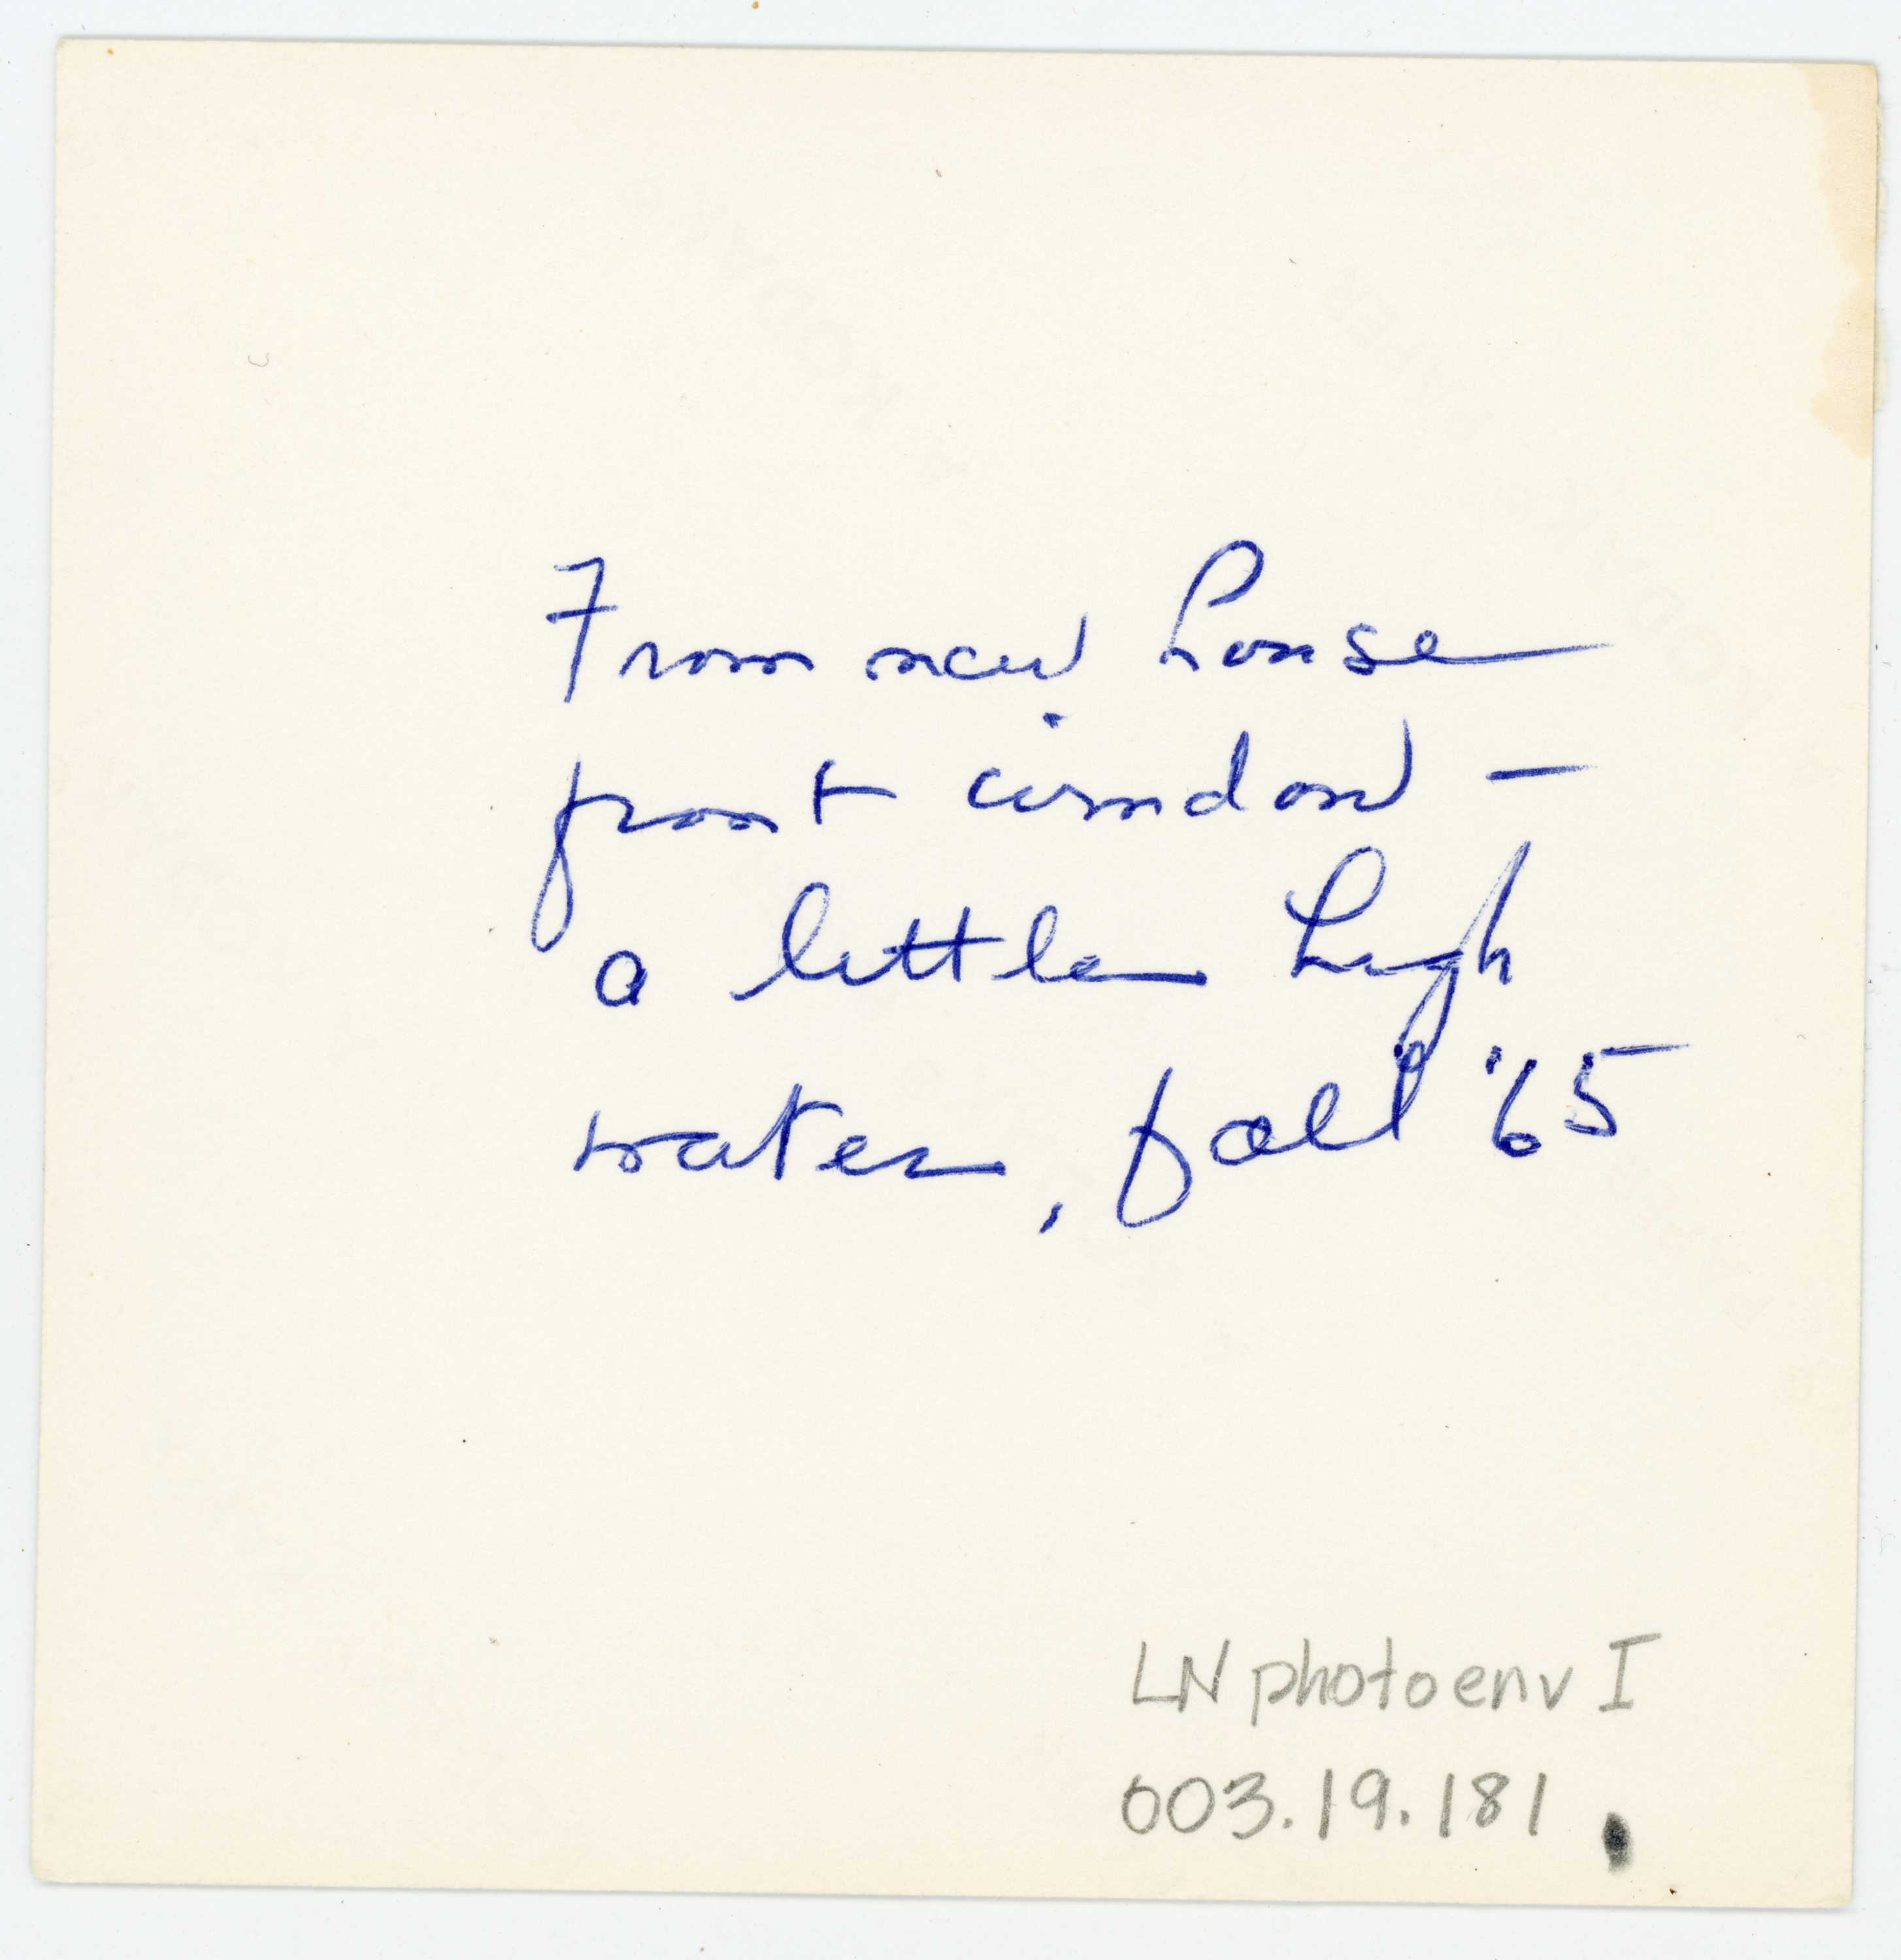 From new house
front window —
a little high
water, fall '65
LN photo env I
003.19.181